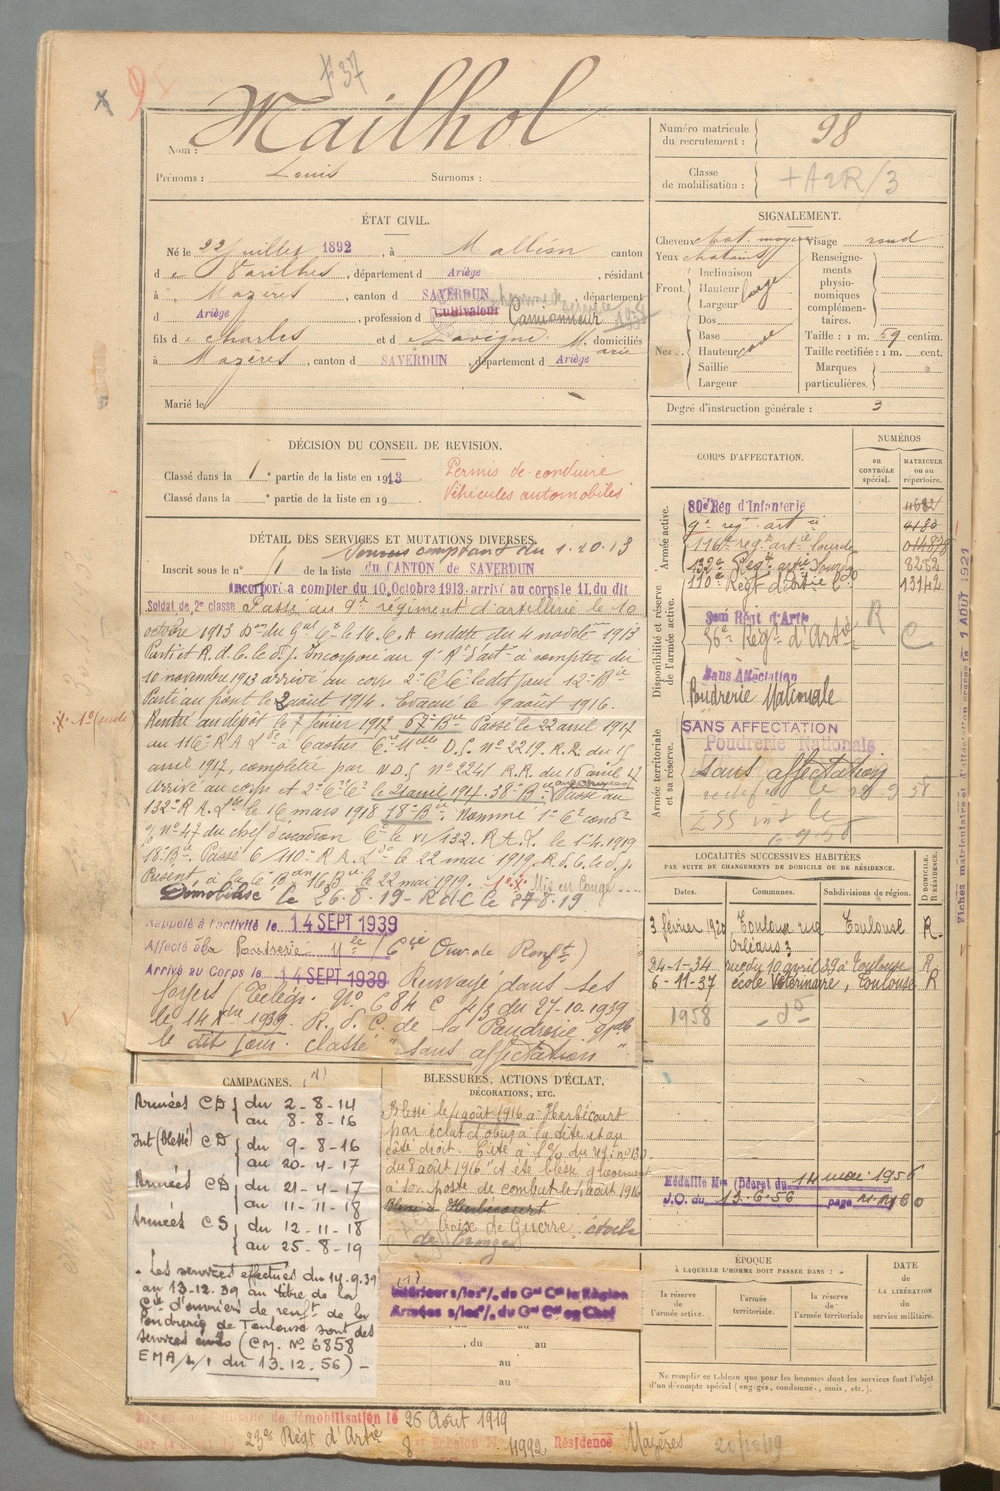 f 37
Mailhol
Nom :
Prénoms : Louis Surnoms :
Numéro matricule du recrutement : 98
Classe de mobilisation : +A2R/3
ÉTAT CIVIL.
Né le 22 Juillet 1892, à Malléon canton
d e Varilhes, département d Ariège, résidant
à Mazères, canton d SAVERDUN, département
d Ariège, profession d Cultivateur Camionneur 1938
fils d e Charles et d e Lavigne M. arie domiciliés
à Mazères, canton d SAVERDUN, département d Ariège
Marié le
SIGNALEMENT.
Cheveux chat. moyen Visage rond
Yeux chatains
Front. Inclinaison
Hauteur large
Largeur
Nez. Dos
Base
Hauteur cave
Saillie
Largeur
Renseignements physionomiques complémentaires.
Taille : 1 m. 59 centim.
Taille rectifiée : 1 m. cent.
Marques particulières.
Degré d'instruction générale : 3
DÉCISION DU CONSEIL DE REVISION.
Classé dans la 1e partie de la liste en 1913
Classé dans la e partie de la liste en 19
Permis de conduire
Véhicules automobiles
CORPS D'AFFECTATION.
NUMÉROS
au CONTRÔLE spécial.
MATRICULE ou au répertoire.
Armée active.
80e Rég d'Infanterie 4682
9e reg. art ie 4180
116e reg. artie lourde
132e Régt artie lourde 8282
110e Régt d'artie Lde 13142
Disponibilité et réserve de l'armée active.
56e Régt d'Artie R C
Sans Affectation
Poudrerie Nationale
Armée territoriale et sa réserve.
SANS AFFECTATION
Poudrerie Nationale
sans affectation
DÉTAIL DES SERVICES ET MUTATIONS DIVERSES.
Services comptant du 1.10.13
Inscrit sous le n° 1 de la liste du CANTON de SAVERDUN
Incorporé à compter du 10 Octobre 1913 arrivé au corps le 11 du dit
Soldat de 2e classe Passé au 9e régiment d'artillerie le 10
octobre 1913 Don du Gal Ct le 16e C.A en date du 4 novbre 1913
Parti et R.d.C. le d.j. Incorporé au 9e Rt d'art ie à compter du
10 novembre 1913 arrivé au corps 2e Cr Ct le dit jour 12e Bie
Parti au front le 2 août 1914. Evacué le 9 août 1916.
Rentré au dépôt le 7 février 1917 67e Bie Passé le 22 avril 1917
au 116e R A Lde à Castres D.S. N° 2219. R.R. du 15
avril 1917, complétée par N.D.S N° 2241 R.R. du 16 avril 17
arrivé au corps et 2e Ct Ct le 21 avril 1917. 38e Bie Passé au
132e R.A. Lde le 16 mars 1918 18e Bie. Nommé 1er Ct condr
% N° 47 du chef d'escadron Ct le VI/132. R.A.L. le 1-4.1919
18e Bie. Passé 6/110e R.A.Lde le 22 mai 1919. R.d.C. le d.j.
Présent, le 22 mai 1919. Mis en Congé
Démobilisé le 26-8-19 - RdC le 27-8-19
Rappelé à l'activité le 14 SEPT 1939
Affecté à la Poudrerie Nle (Cie Ouv. de Renft)
Arrivé au Corps le 14 SEPT 1939 Renvoyé dans ses
foyers (Télég. N° 684 C 4/3 du 27-10-1939
le 14 Xbre 1939. R.d.C. de la Poudrerie Nale
le dit jour. classé "sans affectation"
LOCALITÉS SUCCESSIVES HABITÉES
PAR SUITE DE CHANGEMENTS DE DOMICILE OU DE RÉSIDENCE.
D DOMICILE. R RÉSIDENCE.
Dates. Communes. Subdivisions de région.
3 février 1920 Toulouse rue Orléans 3 Toulouse R
24-1-34 rue du 10 avril 39 à Toulouse R
6-11-37 école Vétérinaire, Toulouse R
1958 - do
Médaille Mre (Décret du 14 mai 1956
J.O. du 13.6.56 page
CAMPAGNES. (1)
Armées CD { du 2-8-14
au 8-8-16
Int (blessé) CD { du 9-8-16
au 20-4-17
Armées CD { du 21-4-17
au 11-11-18
Armées CS { du 12-11-18
au 25-8-19
Les services effectués du 14.9.39
au 13-12.39 au titre de la
Cie d'ouvriers de renft de la
Poudrerie de Toulouse sont des
services civils (C.M. N° 6858
EMA/4/1 du 13.12.56) -
BLESSURES, ACTIONS D'ÉCLAT, DÉCORATIONS, ETC.
Blessé le 4 août 1916 à Herbécourt
par éclat d'obus à la tête et au
côté droit. Cité à l'o/ du régt n° 130
du 8 août 1916 "a été blessé grièvement
à son poste de combat le 4 août 1916
Croix de Guerre étoile
de bronze
(1)
Intérieur s/les o/. du Gal Ct la Région
Armées s/les o/. du Gal Ct en Chef
, du au
au
au
ÉPOQUE
À LAQUELLE L'HOMME DOIT PASSER DANS :
la réserve de l'armée active.
l'armée territoriale.
la réserve de l'armée territoriale
DATE de LA LIBÉRATION du service militaire.
Ne remplir ce tableau que pour les hommes dont les services font l'objet
d'un décompte spécial (engagés, condamné, omis, etc.).
démobilisation le 26 Août 1919
23e Régt d'Artie 8 Echelon N° 11992 Résidence Mazères 20/10/19